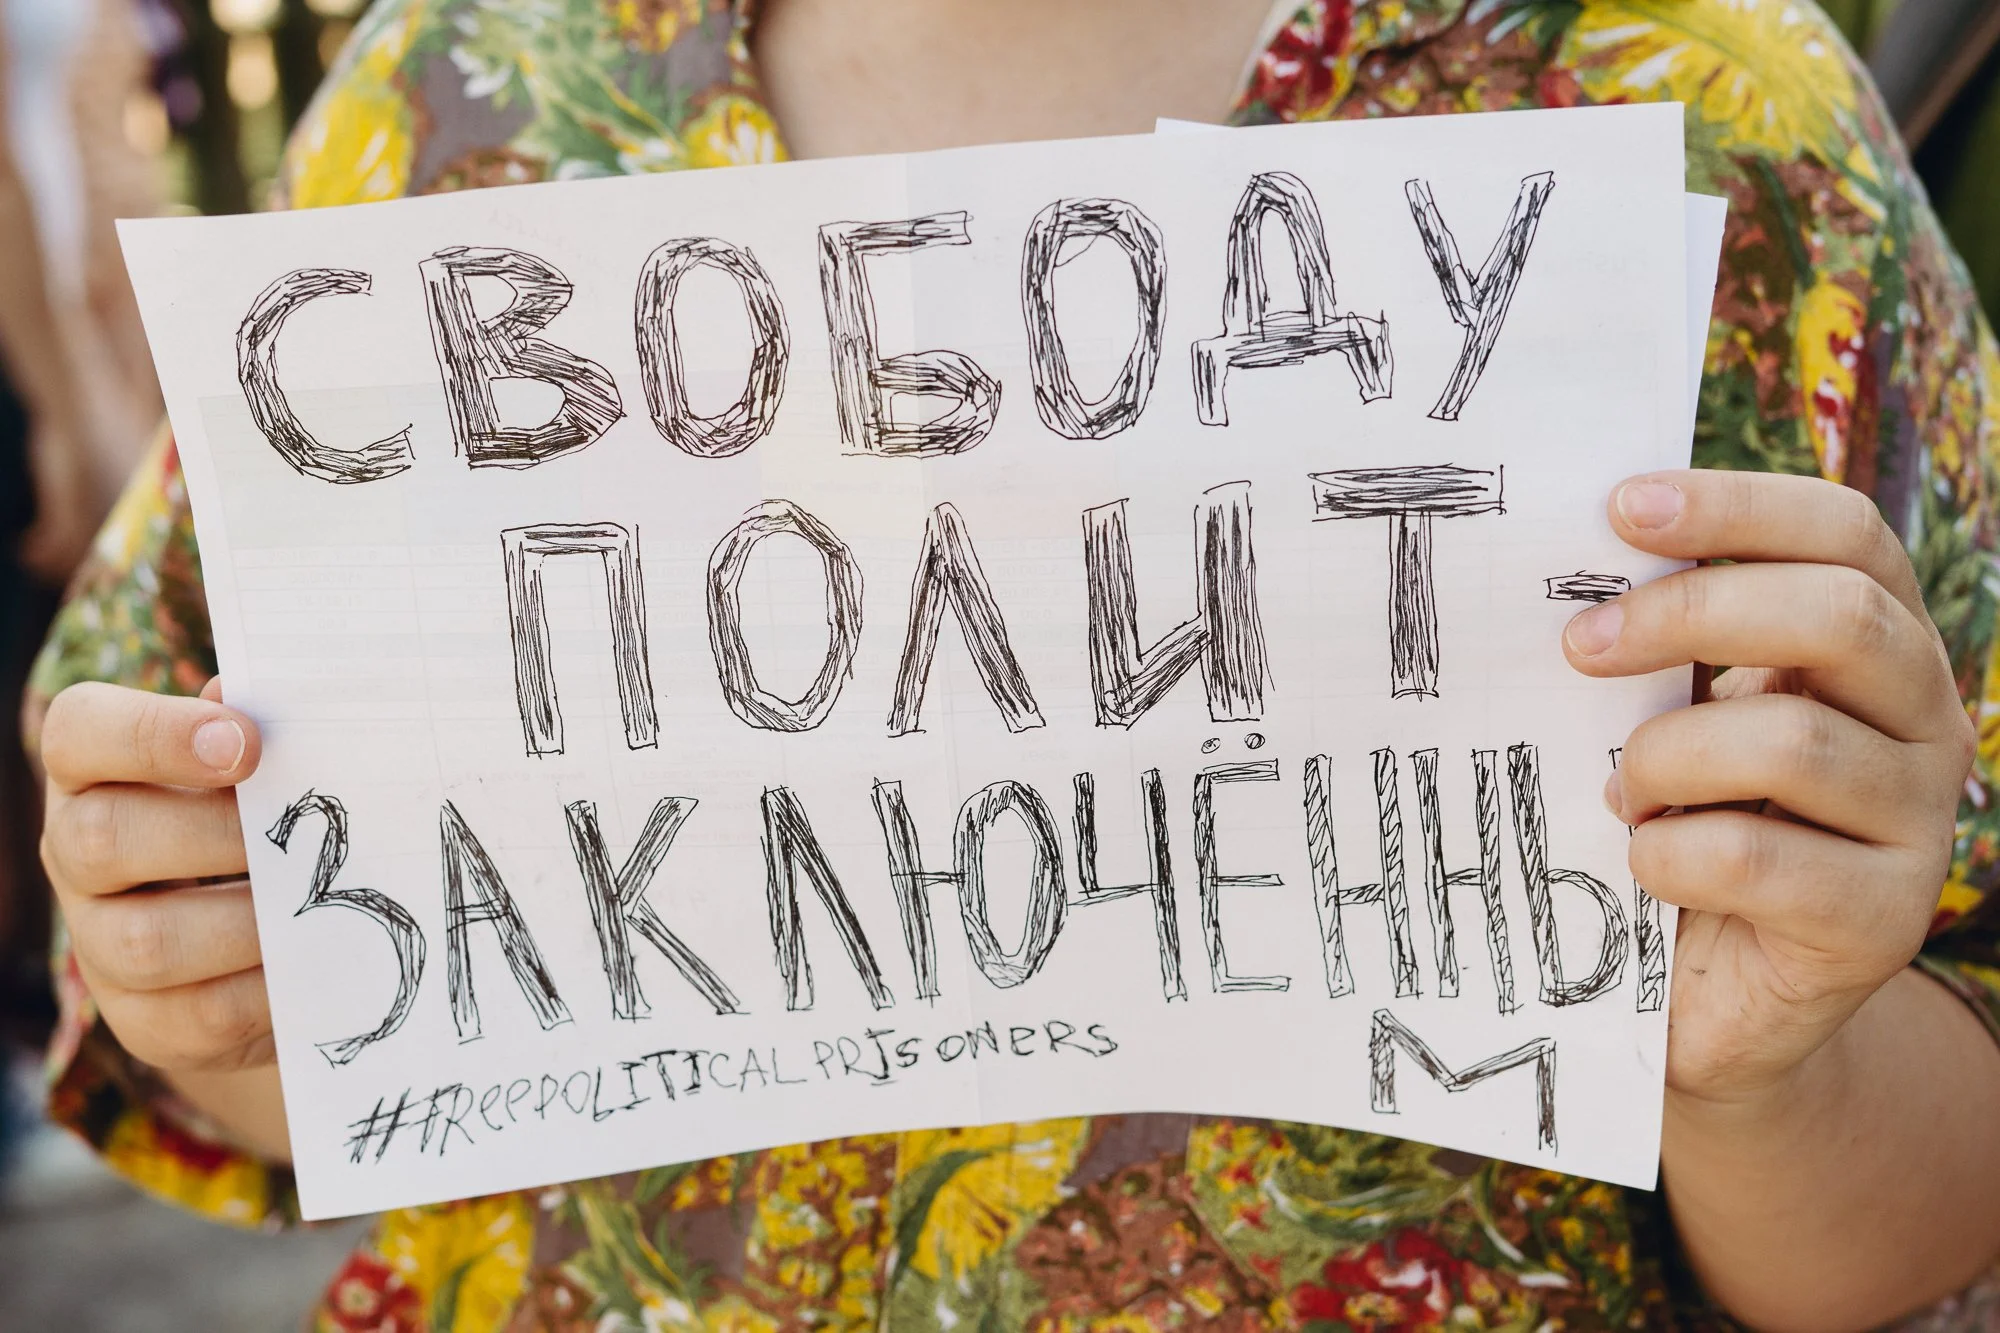 СВОБОДУ
ПОЛИТ-
ЗАКЛЮЧЁННЫ
М
#FREEPOLITICALPRISONERS